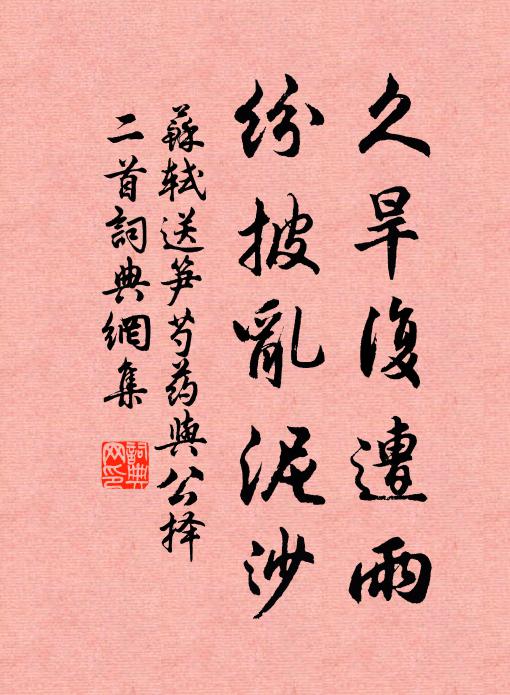 久旱復遭雨
紛披亂泥沙
蘇軾送笋芍药與公择
二首詞典網集
詞典
网印